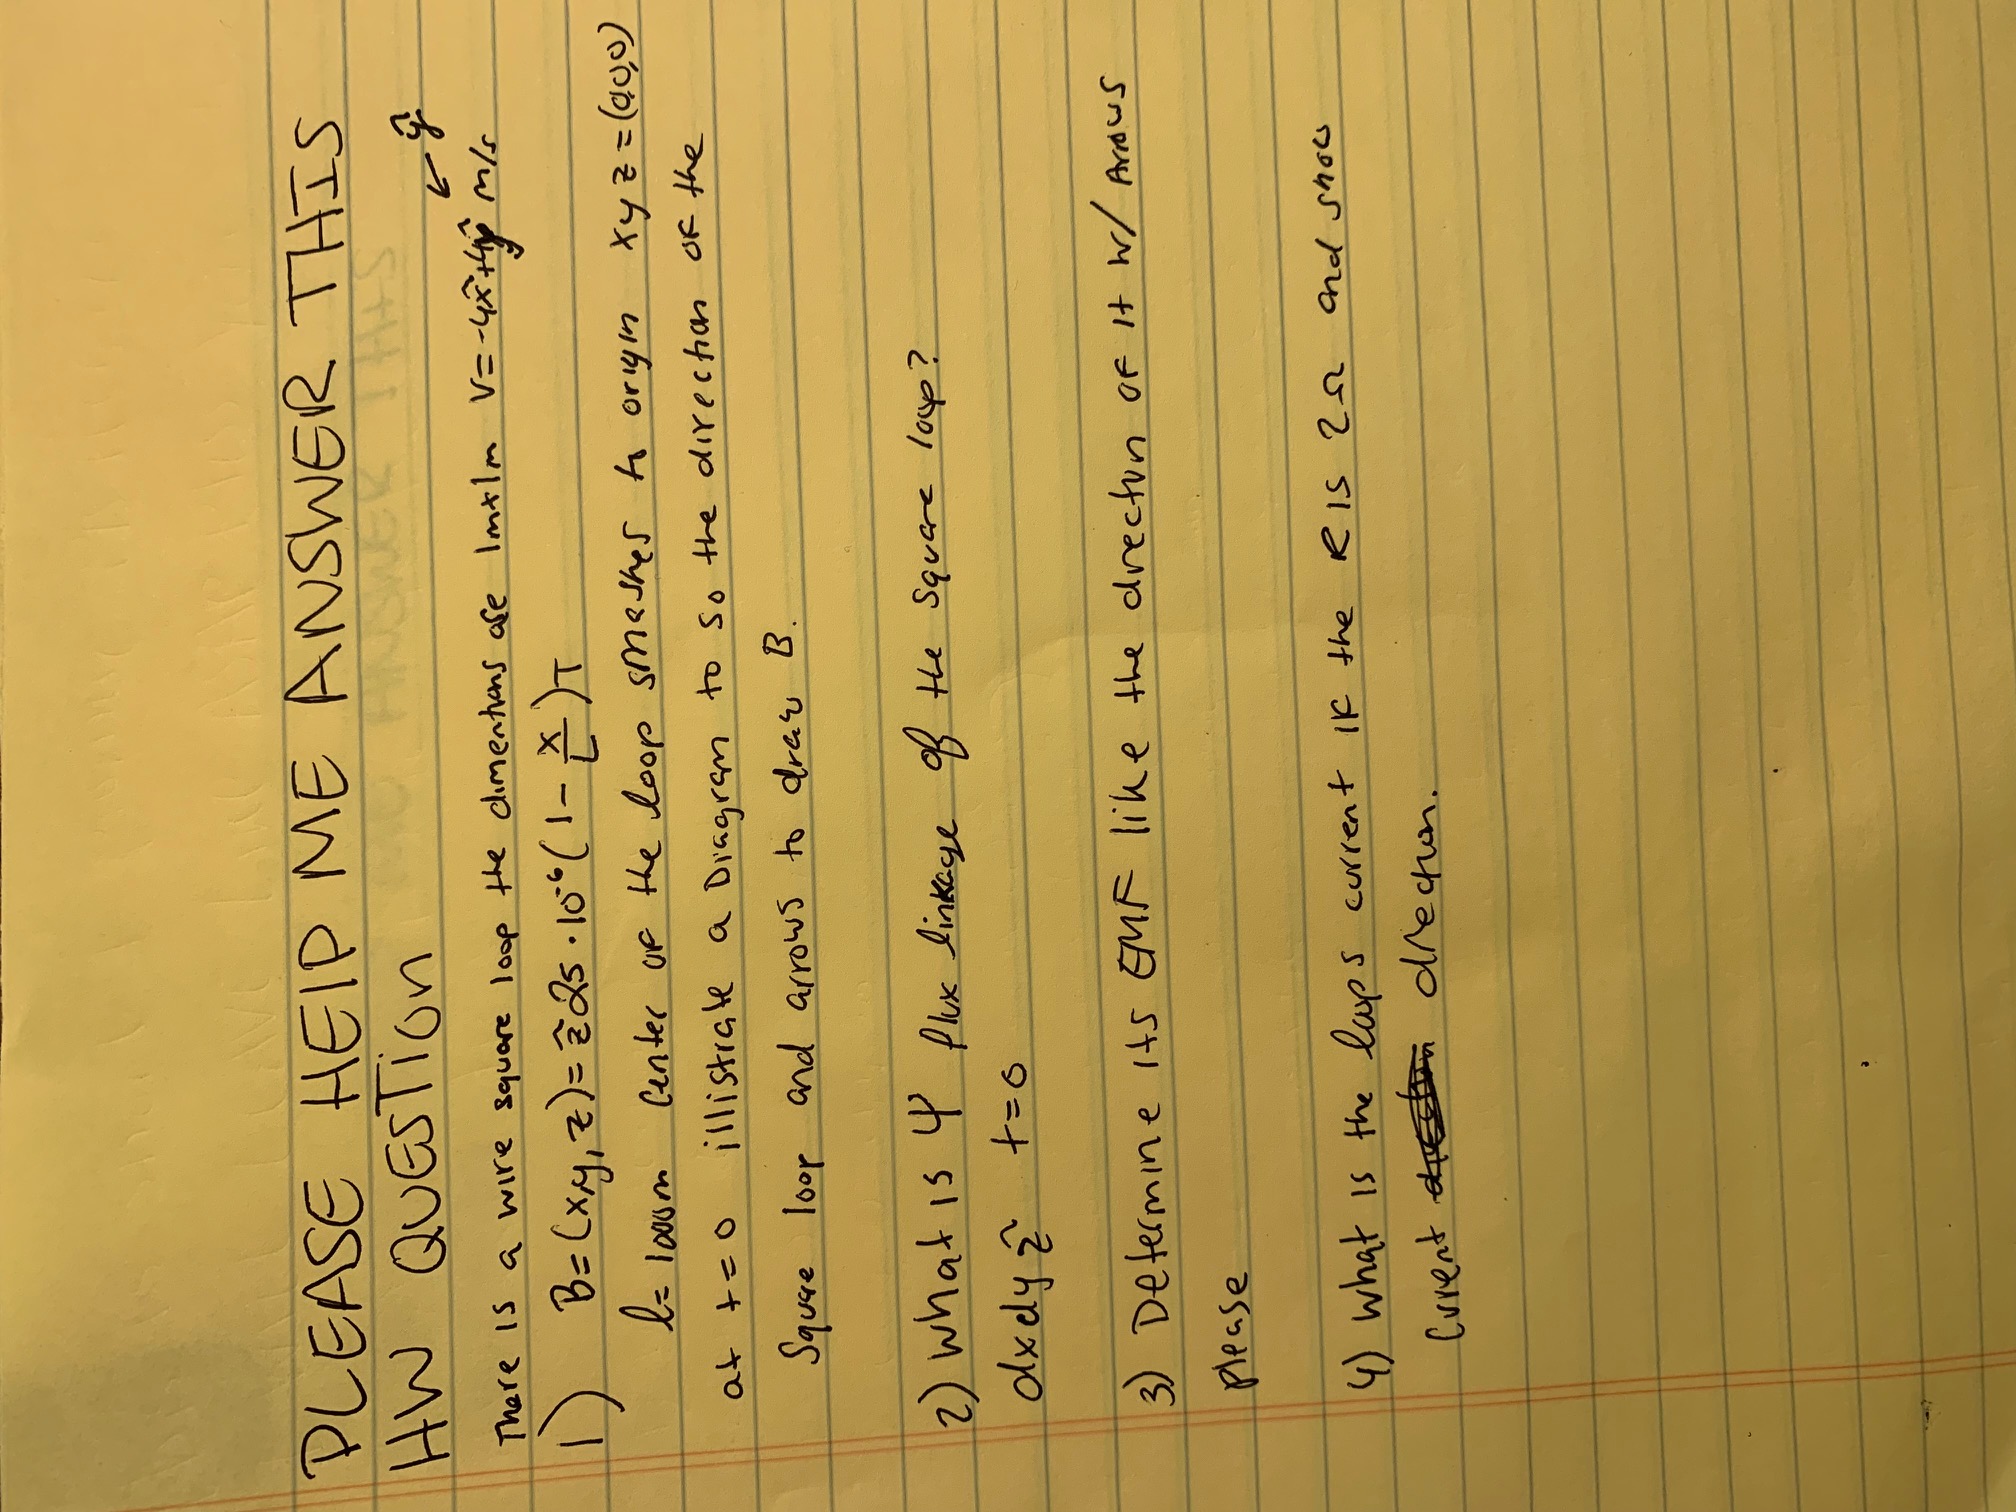 PLEASE HELP ME ANSWER THIS
HW QUESTION
← ŷ
There is a wire square loop the dimentions are 1mx1m v=-4x̂+4ŷ m/s
1) B=(x,y,z)=ẑ25·10⁻⁶(1-x/L)T
l=100m Center of the loop smashes to origin xyz=(0,0,0)
at t=0 illistrate a Diagram to so the direction of the
Square loop and arrows to draw B.
2) What is Ψ flux linkage of the square loop?
dxdyẑ t=0
3) Determine its EMF like the direction of it w/ Arrows
please
4) What is the loops current if the R is 2Ω and show
Current direction.